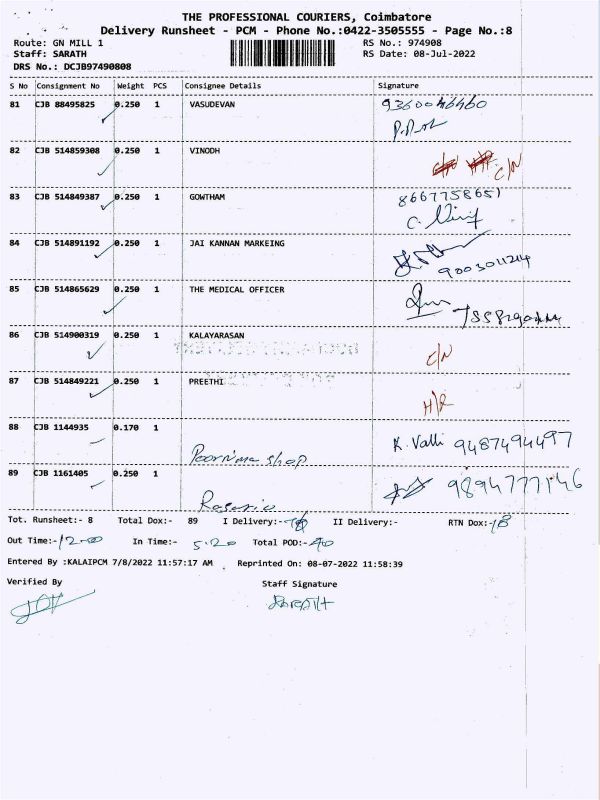 THE PROFESSIONAL COURIERS, Coimbatore
Delivery Runsheet - PCM - Phone No.:0422-3505555 - Page No.:8
Route: GN MILL 1 RS No.: 974908
Staff: SARATH RS Date: 08-Jul-2022
DRS No.: DCJB97490808
S No Consignment No Weight PCS Consignee Details Signature
81 CJB 88495825 0.250 1 VASUDEVAN
82 CJB 514859308 0.250 1 VINODH C/N
83 CJB 514849387 0.250 1 GOWTHAM 8667758651
84 CJB 514891192 0.250 1 JAI KANNAN MARKEING
9003011214
85 CJB 514865629 0.250 1 THE MEDICAL OFFICER
86 CJB 514900319 0.250 1 KALAYARASAN
C/N
87 CJB 514849221 0.250 1 PREETHI
88 CJB 1144935 0.170 1
K. Valli 9487494497
Poornima shop
89 CJB 1161405 0.250 1
9894777146
Rosario
Tot. Runsheet:- 8 Total Dox:- 89 I Delivery:- II Delivery:- RTN Dox:-
Out Time:- 12-00 In Time:- 5.20 Total POD:-
Entered By :KALAIPCM 7/8/2022 11:57:17 AM Reprinted On: 08-07-2022 11:58:39
Verified By Staff Signature